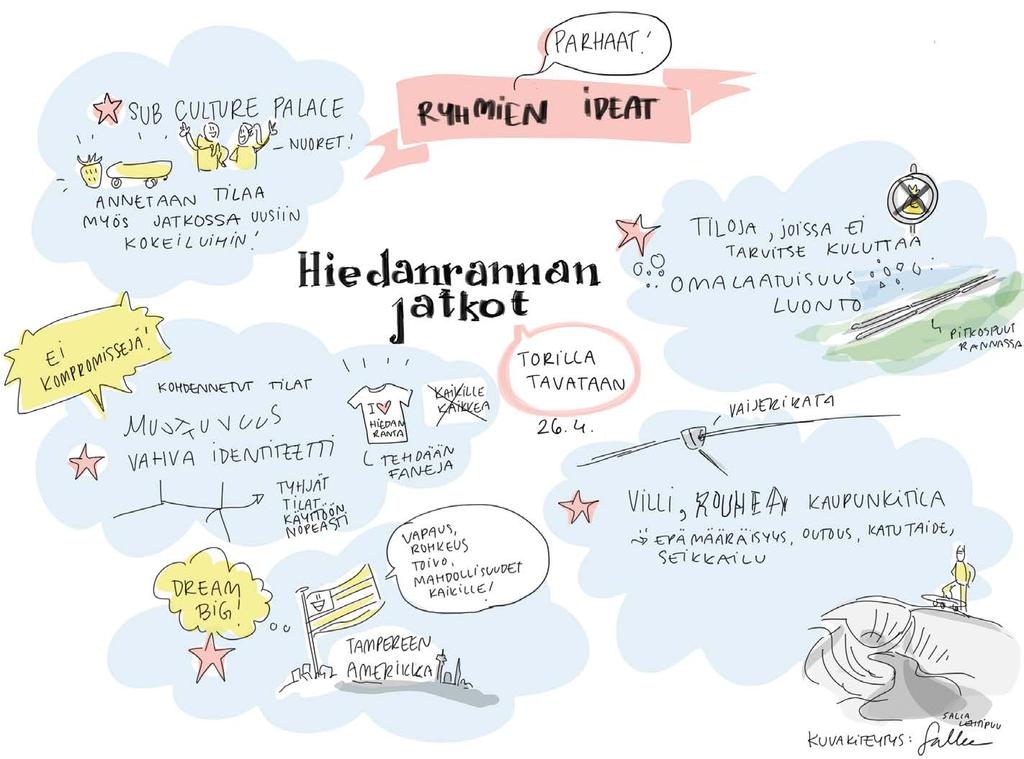 PARHAAT!
RYHMIEN IDEAT
SUB CULTURE PALACE
– NUORET!
ANNETAAN TILAA
MYÖS JATKOSSA UUSIIN
KOKEILUIHIN!
TILOJA, JOISSA EI
TARVITSE KULUTTAA
OMALAATUISUUS
LUONTO
PITKOSPUUT
RANNASSA
Hiedanrannan
jatkot
TORILLA
TAVATAAN
26.4.
EI
KOMPROMISSEJÄ!
KOHDENNETUT TILAT
MUSTAVUUS
VAHVA IDENTITEETTI
TYHJÄT
TILAT
KÄYTTÖÖN
NOPEASTI
I ❤
HIEDAN
RANTA
TEHDÄÄN
FANEJA
KAIKILLE
KAIKKEA
VAIJERIRATA
VILLI, ROUHEA KAUPUNKITILA
EPÄMÄÄRÄISYYS, OUTOUS, KATUTAIDE,
SEIKKAILU
DREAM
BIG!
VAPAUS,
ROHKEUS
TOIVO,
MAHDOLLISUUDET
KAIKILLE!
TAMPEREEN
AMERIIKKA
KUVAKITEYTYS:
SALLA
LEHTIPUU
Salla